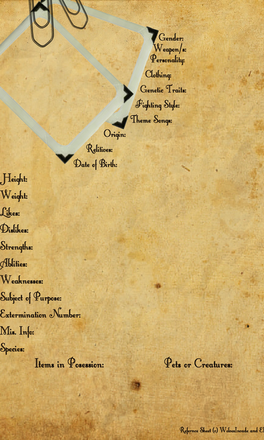 Gender:
Weapon/s:
Personality:
Clothing:
Genetic Traits:
Fighting Style:
Theme Songs:
Origin:
Relitives:
Date of Birth:
Height:
Weight:
Likes:
Dislikes:
Strengths:
Abilities:
Weaknesses:
Subject of Purpose:
Extermination Number:
Mis. Info:
Species:
Items in Posession: Pets or Creatures:
Reference Sheet (c)